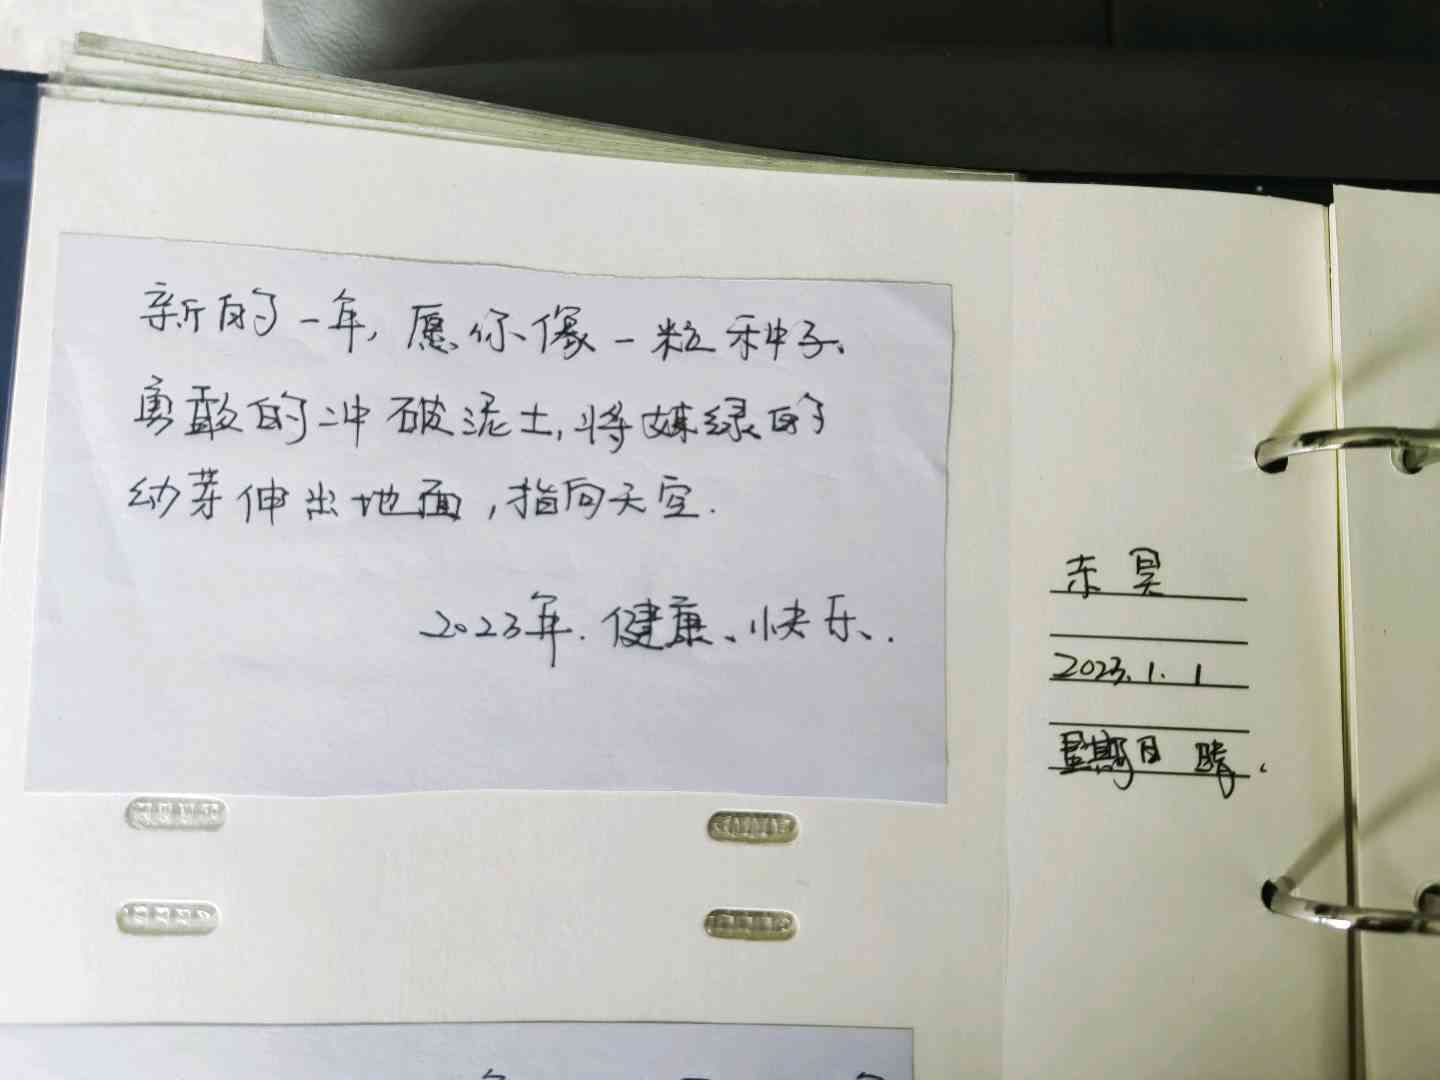 新的一年，愿你像一粒种子、
勇敢的冲破泥土，将嫩绿的
幼芽伸出地面，指向天空.
2023年.健康、快乐、.
东昊
2023.1.1
星期日 晴.